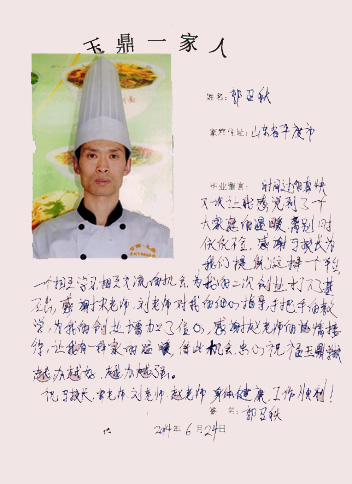 玉鼎一家人
姓名：郭召秋
家庭住址：山东省平度市
毕业留言：时间过的真快
大家庭的温暖离别时
依依不舍，感谢于校长为
我们提供这样一个平台
一个相互学习相互交流的机会，为我的二次创业打下了基
石，感谢宋老师，刘老师对我的细心指导，手把手的教
学，为我的创业增加了信心，感谢赵老师的热情接
待，让我有一种家的温暖，借此机会，衷心祝福玉鼎
越办越好，越办越强。
祝于校长，宋老师刘老师赵老师身体健康，工作顺利！
签名：郭召秋
2014年6月24日